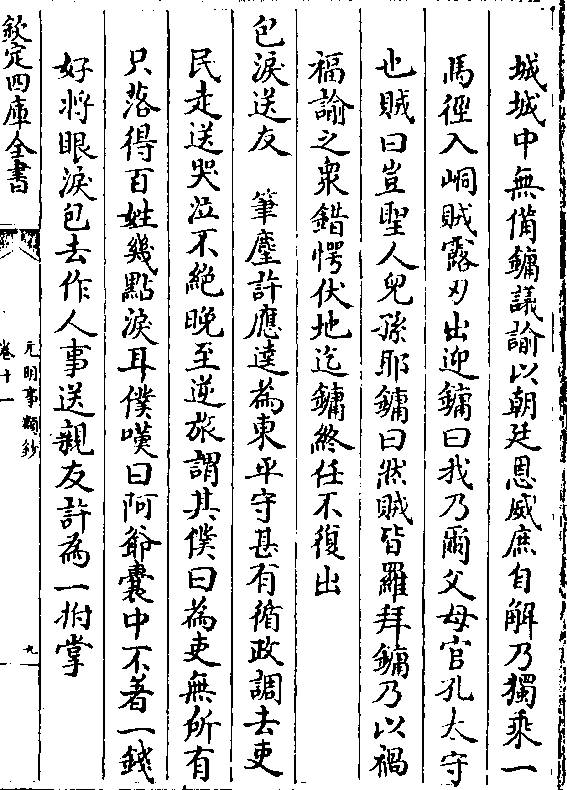 城城中無備鏞議諭以朝廷恩威庶自解乃獨乘一
馬徑入峒賊露刃出迎鏞曰我乃爾父母官孔太守
也賊曰豈聖人兒孫耶鏞曰然賊皆羅拜鏞乃以禍
福諭之衆錯愕伏地迄鏞終任不復出
包淚送友　筆麈許應逵為東平守甚有循政調去吏
民走送哭泣不絶晚至逆旅謂其僕曰為吏無所有
只落得百姓幾點淚耳僕嘆曰阿爺囊中不着一錢
好將眼淚包去作人事送親友許為一拊掌
欽定四庫全書
元明事類鈔
卷十一
九